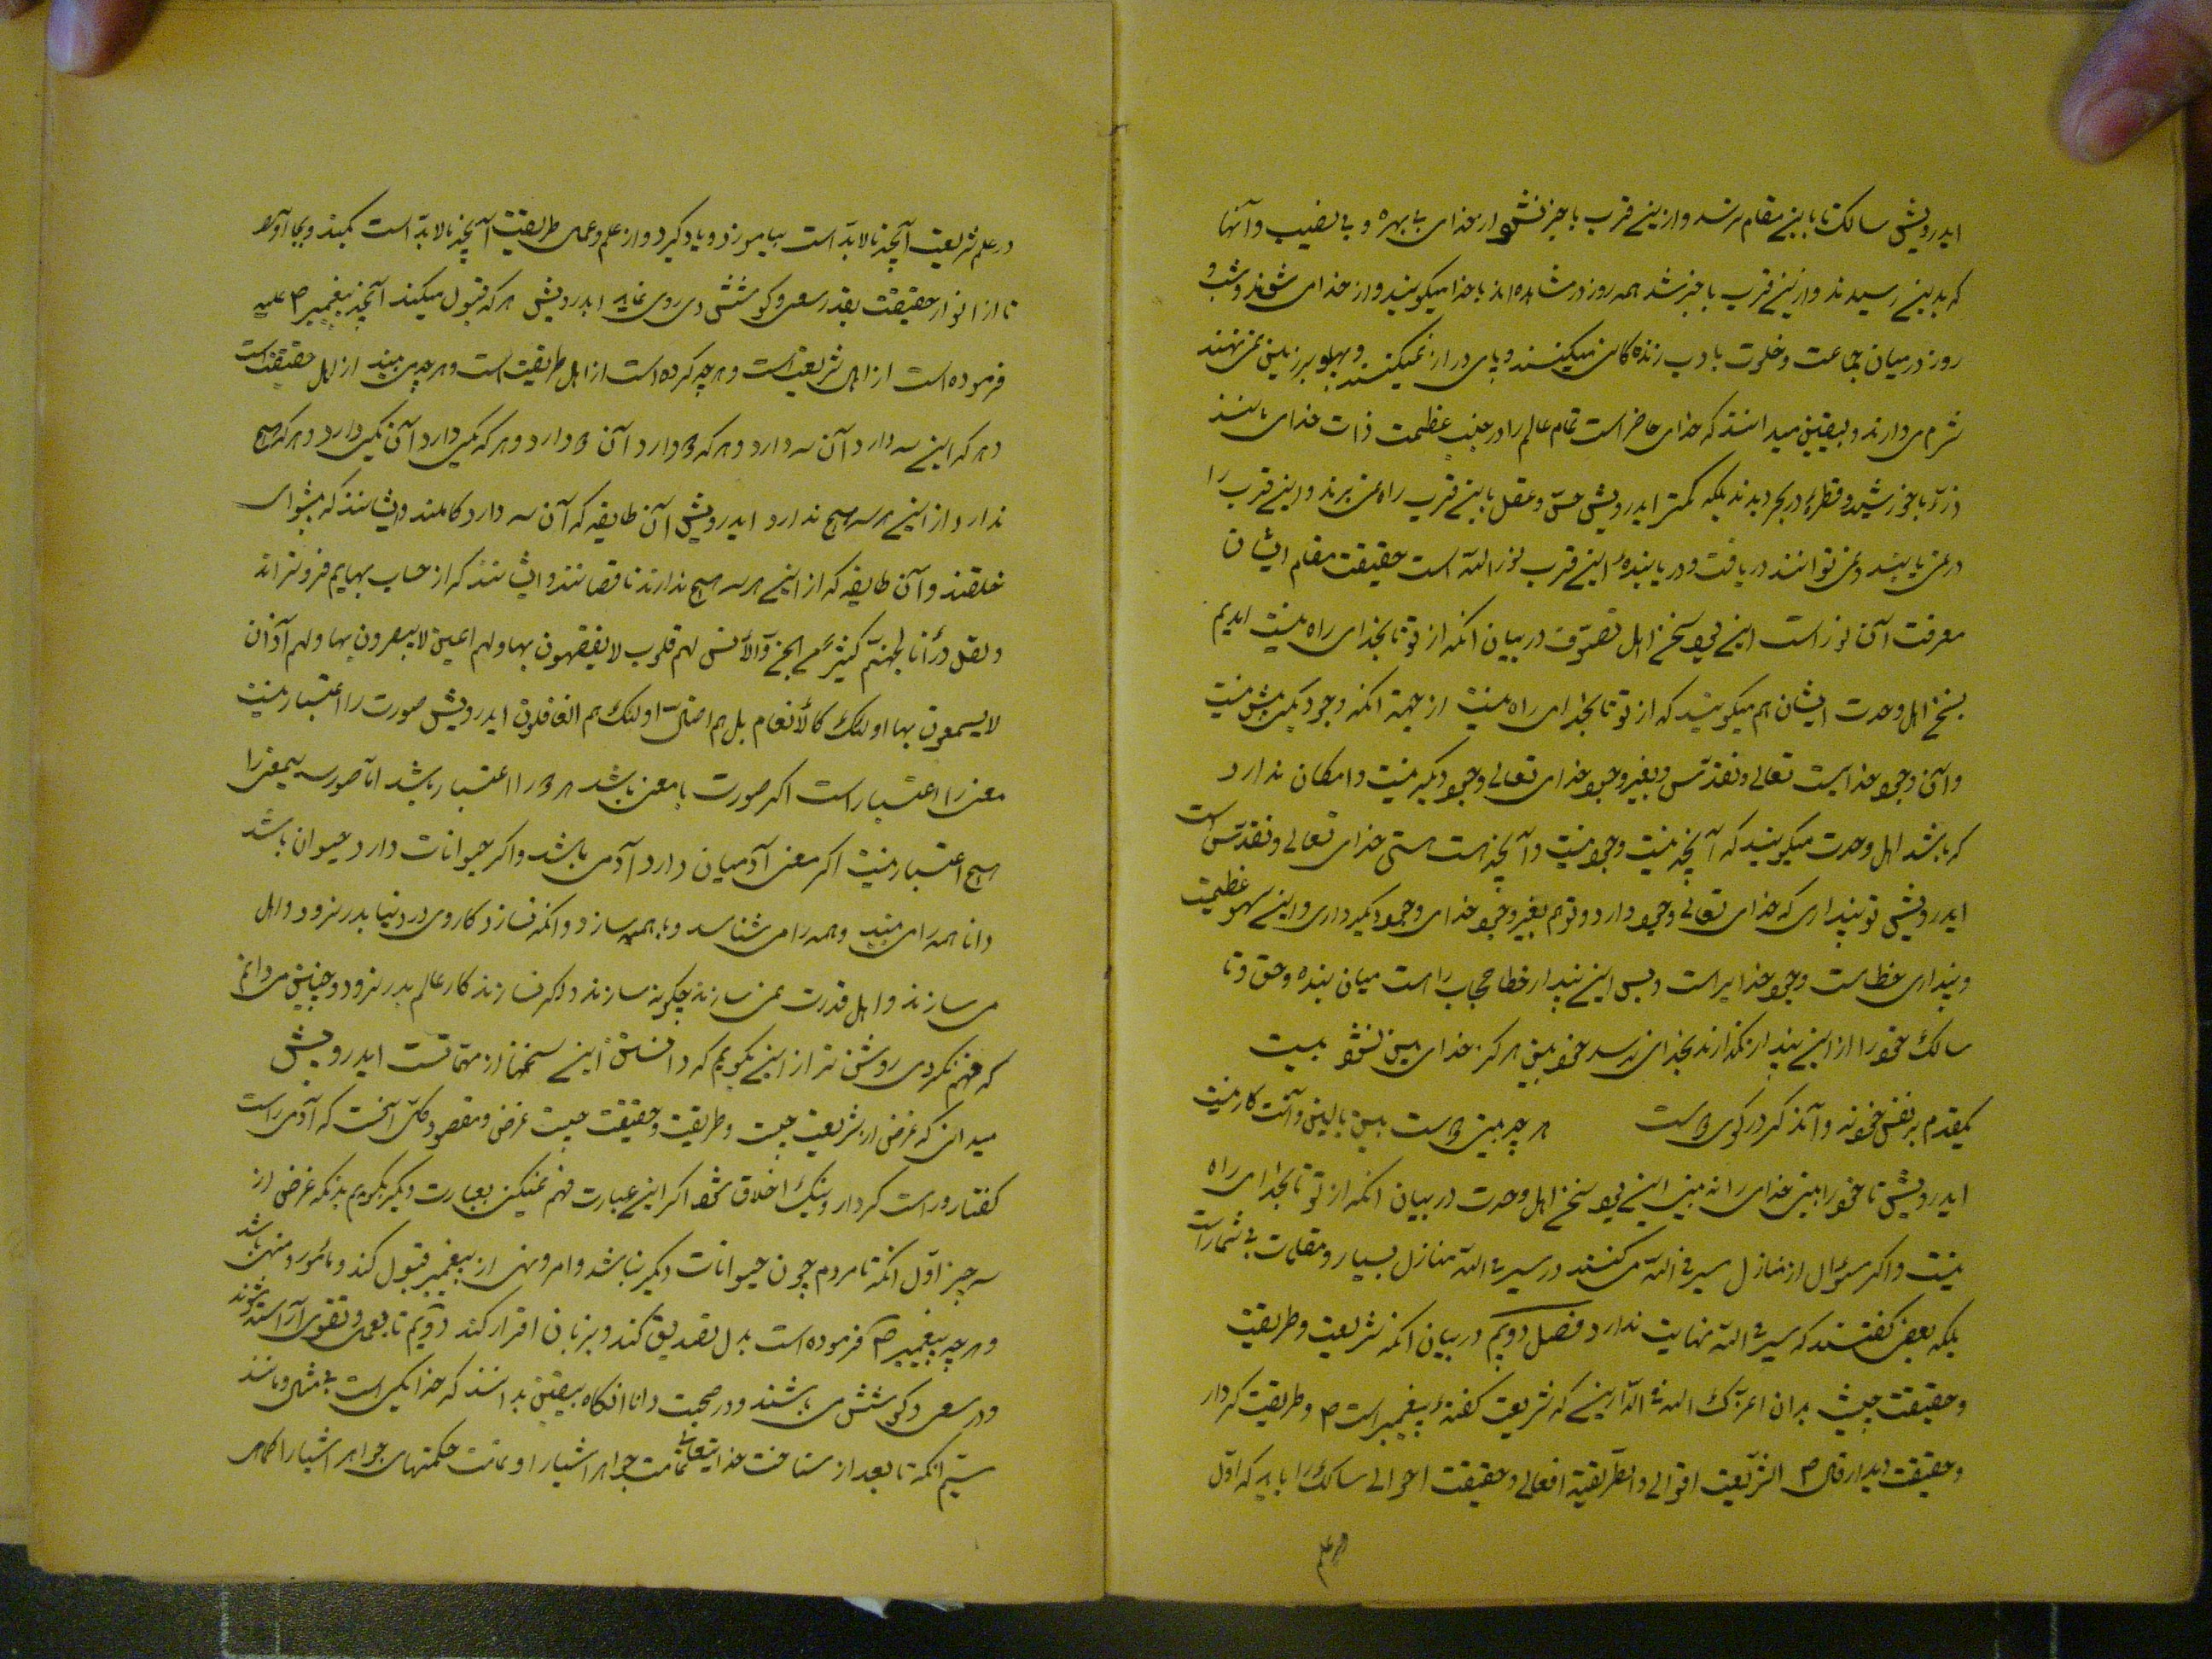 ایدرویش سالک تا باین مقام نرسد و ازین قرب با خبر نشود از خدای بی بهره و بی نصیب و آنها
که بدین رسیدند و ازین قرب با خبر شدند همه روز در مشاهده‌اند با خدا میگویند و از خدا می شنوند و شب و
روز در میان جماعت و خلوت با ادب زندگانی میکنند و پای دراز نمیکنند و پهلو بر زمین نمی نهند
شرم می دارند و بیقین میدانند که خدای حاضر است تمام عالم را در جنب عظمت ذات خدای مانند
ذرّه با خورشید و قطره در بحر دیدند بلکه کمتر ایدرویش حسّ و عقل باین قرب راه نمی برند و این قرب را
در نمی یابند و نمی توانند دریافت و دریابندهٔ این قرب نور الله است حقیقت مقام ایشان
معرفت آن نور است این بود سخن اهل تصوّف در بیان انکه از تو تا بخدای راه نیست امدیم
بسخن اهل وحدت ایشان هم میگویند که از تو تا بخدای راه نیست از جهة انکه وجود یکی بیش نیست
و آن وجود خدایست تعالی و تقدّس و بغیر وجود خدای تعالی وجود دیگر نیست و امکان ندارد
که باشد اهل وحدت میگویند که آنچه نیست وجود نیست و آنچه هست هستی خدای تعالی و تقدّس است
ایدرویش تو پنداری که خدای تعالی وجود دارد و تو هم بغیر وجود خدای وجود دیگر داری و این سهو عظیمست
و پنداری خطاست وجود خدایراست و بس این پندار خطا حجاب راست میان بنده و حق و تا
سالک خود را از این پندار نگذارند بخدای نرسد خودبین هرگز خدای بین نشود بیت
یکقدم بر نفس خود نه وان دگر در کوی دوست هرچه بینی دوست بین با این و آنت کار نیست
ایدرویش تا خود را بینی خدای را نه بینی این بود سخن اهل وحدت در بیان انکه از تو تا بخدای راه
نیست و اگر سؤال از منازل سیر فی الله می کنند در سیر فی الله منازل بسیار و مقامات بی شمار است
بلکه بعضی گفتند که سیر فی الله نهایت ندارد فصل دویم در بیان انکه شریعت و طریقت
و حقیقت چیست بدان اعزّک الله فی الدّارین که شریعت گفتهٔ پیغمبر است ص و طریقت کردار
و حقیقت دیدار قال ص الشّریعت اقوالی و الطّریقة افعالی و حقیقت احوالی سالک را باید که اوّل
در علم
در علم شریعت آنچه مالابدّ است بیاموزد و یاد گیرد و از علم و عمل طریقت آنچه مالابدّ است بکند و بجا آورد
تا از انوار حقیقت بقدر سعی و کوشش وی روی نماید ایدرویش هر که قبول میکند آنچه پیغمبر ص علیه
فرموده است از اهل شریعت است و هر چه کرده است از اهل طریقت است و هر چه می بیند از اهل حقیقت است
و هر که این سه دارد آن سه دارد و هر که ۲ دارد آن ۲ دارد و هر که یکی دارد آن یکی دارد و هر که هیچ
ندارد از این هر سه هیچ ندارد ایدرویش آن طایفه که آن سه دارد کاملند و ایشانند که پیشوای
خلقند و آن طایفه که از این هر سه هیچ ندارند ناقصانند و ایشانند که از حساب بهایم فروترند
و لقد ذرأنا لجهنّم کثیراً من الجنّ و الأنس لهم قلوب لا یفقهون بها و لهم اعین لا یبصرون بها و لهم آذان
لا یسمعون بها اولئک کالأنعام بل هم اضلّ اولئک هم الغافلون ایدرویش صورت را اعتبار نیست
معنی را اعتبار است اگر صورت با معنی باشد هر ۲ را اعتبار باشد امّا صورت بیمعنی را
هیچ اعتبار نیست اگر معنی آدمیان دارد آدمی باشد و اگر حیوانات دارد حیوان باشد
دانا همه را می بیند و همه را می شناسد و با همه سازد و انکه نسازد کار وی در دنیا بدر نرود و اهل
می سازند و اهل قدرت نمی سازند چگونه سازند و اگر نسازند کار عالم بدر نرود و چنین می دانم
که فهم نکردی روشن تر از این بگویم که دانستن این سخنها از مهمّاتست ایدرویش
میدانی که غرض از شریعت چیست و طریقت و حقیقت چیست غرض و مقصود کلّی آنست که آدمی راست
گفتار و راست کردار و نیک اخلاق شود اگر این عبارت فهم نمیکنی بعبارت دیگر بگویم بدانکه غرض از
سه چیز اوّل انکه تا مردم چون حیوانات دیگر نباشد و امر و نهی از پیغمبر قبول کند و مأمور و منهی باشد
و هر چه پیغمبر ص فرموده است بدل تصدیق کند و بزبان اقرار کند دویّم تا بعمل و تقوی آراسته شوند
و در سعی و کوشش می باشند و در صحبت دانا انگاه بیقین بدانند که خدا یکی است بی مثل و مانند
سیّم انکه تا بعد از شناخت خدایتعالی تمامت جواهر اشیا را و تمامت حکمتهای جواهر اشیا را کماهی